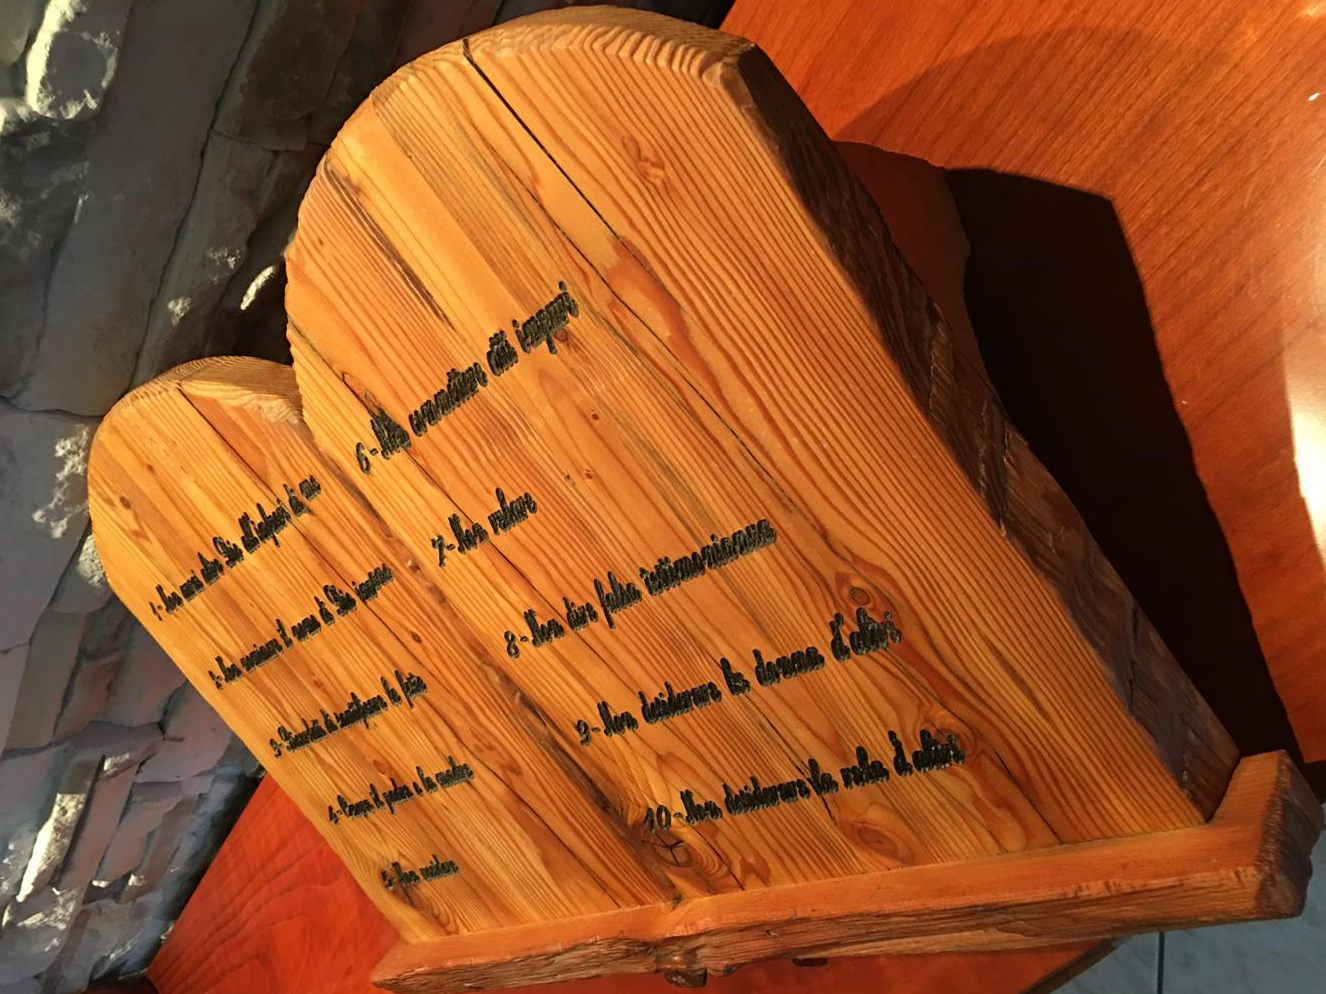 1-Non avrai altro Dio all'infuori di me
2-Non nominare il nome di Dio invano
3-Ricordati di santificare le feste
4-Onora il padre e la madre
5-Non uccidere
6-Non commettere atti impuri
7-Non rubare
8-Non dire falsa testimonianza
9-Non desiderare la donna d'altri
10-Non desiderare la roba d'altri